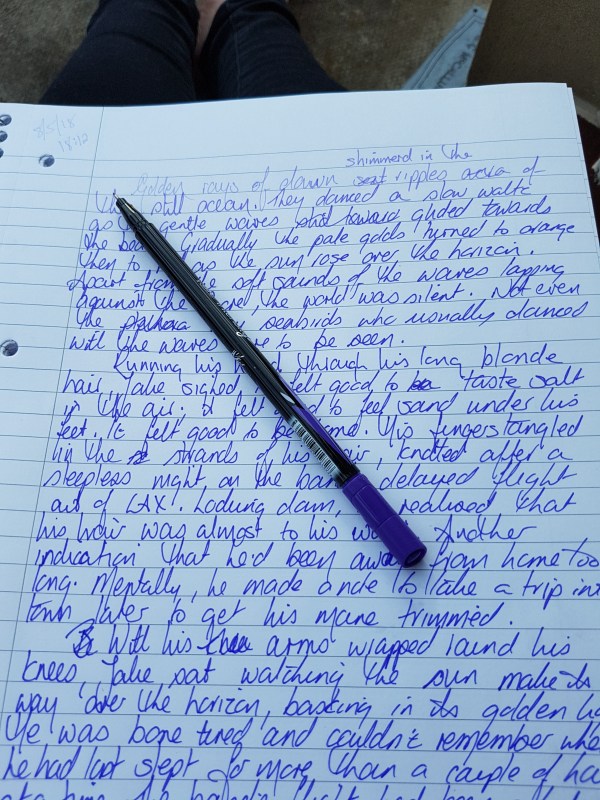 8/5/18
18:12
shimmerd in the
Golden rays of dawn ripples area of
the still ocean. They danced a slow waltz
as gentle waves glided towards
the Gradually the pale golds turned to orange
then to as the sun rose over the horizon.
Apart from the soft sounds of the waves lapping
against the the world was silent. Not even
the seabirds who usually danced
with the waves to be seen.
Running his through his long blonde
hair, Jake sighed. felt good to taste salt
in the air. It felt to feel sand under his
feet. It felt good to be home. His fingers tangled
in the strands of his hair, knotted after a
sleepless night on the delayed flight
out of LAX. Looking down, realised that
his hair was almost to his Another
indication that he'd been away from home too
long. Mentally, he made a note to take a trip into
town later to get his mane trimmed.
With his arms wrapped round his
knees, Jake sat watching the sun make its
way over the horizon, basking in its golden
He was bone tired and couldn't remember
he had last slept for more than a couple of